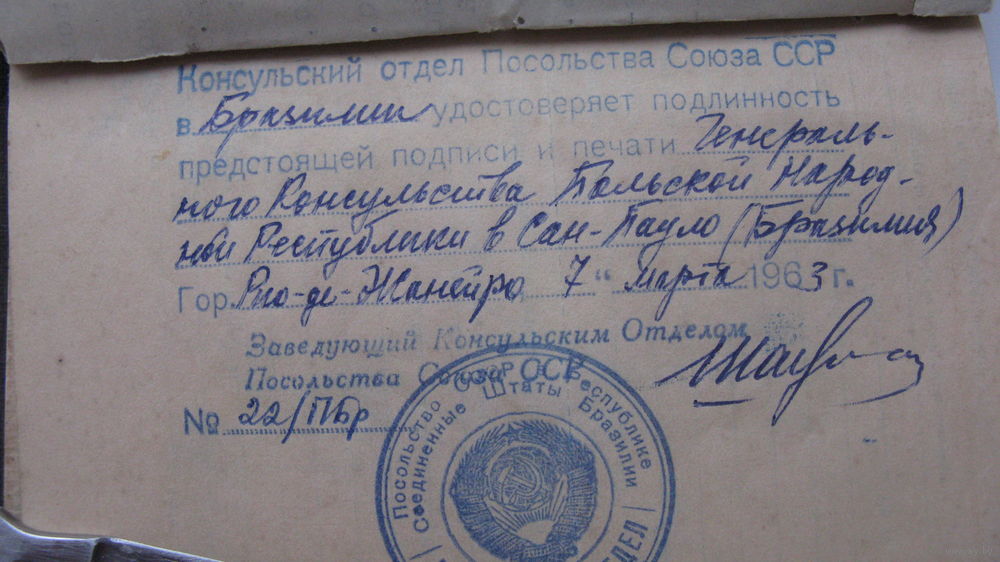 Консульский отдел Посольства Союза ССР
в Бразилии удостоверяет подлинность
предстоящей подписи и печати Генераль-
ного Консульства Польской Народ-
ной Республики в Сан-Пауло (Бразилия)
Гор. Рио-де-Жанейро 7 " марта 1963 г.
Заведующий Консульским Отделом
Посольства Союза ССР
№ 22/ПБр
Посольство СССР в Республике
Соединенные Штаты Бразилии